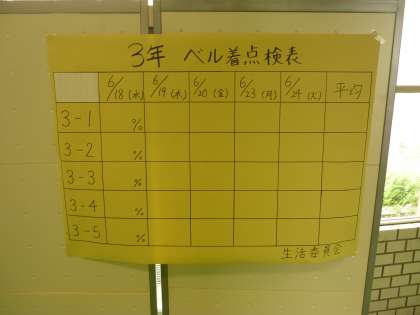 3年 ベル着点検表
6/18(水) 6/19(木) 6/20(金) 6/23(月) 6/24(火) 平均
3-1 %
3-2 %
3-3 %
3-4 %
3-5 %
生活委員会